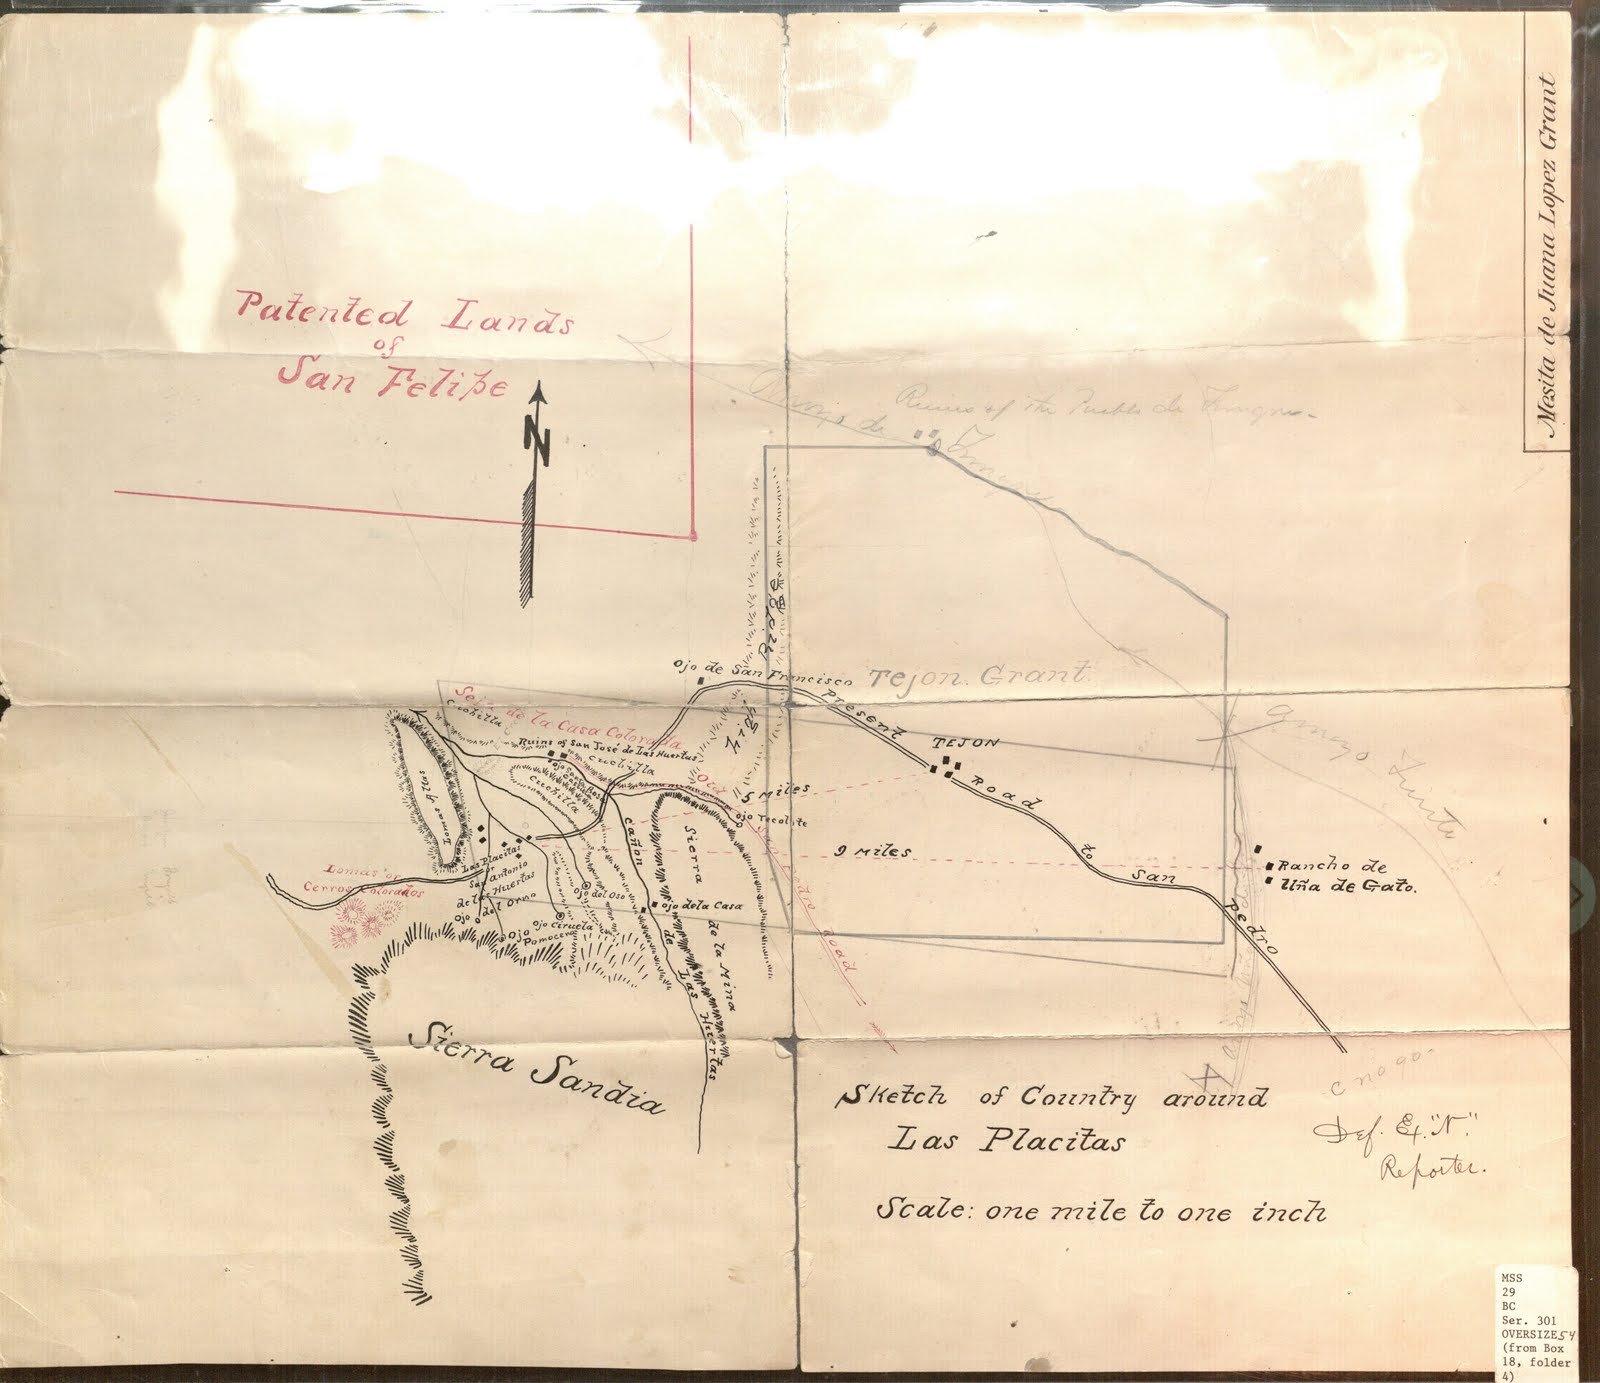 Mesita de Juana Lopez Grant
Patented Lands
of
San Felipe
N
Ruins of the Pueblo de
Arroyo de
Ridge
Ojo de San Francisco
Tejon Grant
present
Road
to
San
pedro
TEJON
de la Casa Colorada
Cuchilla
Ruins of San José de Las Huertas
Cuchilla
Cuchilla
Ridge
Old
San Pedro Road
5 Miles
Ojo Tecolote
9 Miles
Rancho de
Uña de Gato.
Arroyo
Lomas
Lomas or
Cerros Colorados
Las Placitas
or
San Antonio
de las Huertas
Ojo del Orno
Ojo del Oso
Ojo Ciruela
Ojo
Ojo de la Casa
Cañon
de
Las
Huertas
Sierra
de la Mina
Sierra Sandia
Sketch of Country around
Las Placitas
Scale: one mile to one inch
Def. Ex. "N."
Reporter.
MSS
29
BC
Ser. 301
OVERSIZE 54
(from Box
18, folder
4)